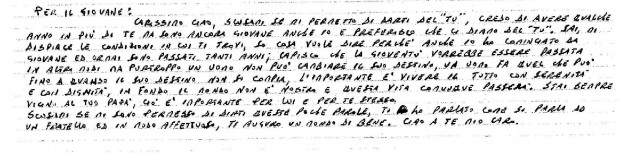 PER IL GIOVANE:
CARISSIMO CIAO, SCUSAMI SE MI PERMETTO DI DARTI DEL "TU", CREDO DI AVERE QUALCHE
ANNO IN PIÙ DI TE MA SONO ANCORA GIOVANE ANCHE IO E PREFERISCO CHE CI DIAMO DEL "TU". SAI, MI
DISPIACE LE CONDIZIONI IN CUI TI TROVI, SO COSA VUOLE DIRE PERCHÈ ANCHE IO HO COMINCIATO DA
GIOVANE ED ORMAI SONO PASSATI TANTI ANNI; CAPISCO CHE LA GIOVENTÙ VORREBBE ESSERE PASSATA
IN ALTRI MODI MA PURTROPPO UN UOMO NON PUÒ CAMBIARE IL SUO DESTINO, UN UOMO FA QUEL CHE PUÒ
FINO A QUANDO IL SUO DESTINO NON SI COMPIA, L'IMPORTANTE È VIVERE IL TUTTO CON SERENITÀ
E CON DIGNITÀ, IN FONDO IL MONDO NON È NOSTRO E QUESTA VITA COMUNQUE PASSERÀ. STAI SEMPRE
VICINO AL TUO PAPÀ, CIÒ È IMPORTANTE PER LUI E PER TE STESSO.
SCUSAMI SE MI SONO PERMESSO DI DIRTI QUESTE POCHE PAROLE, TI HO PARLATO COME SI PARLA AD
UN FRATELLO ED IN MODO AFFETTUOSO, TI AUGURO UN MONDO DI BENE. CIAO A TE MIO CARO.